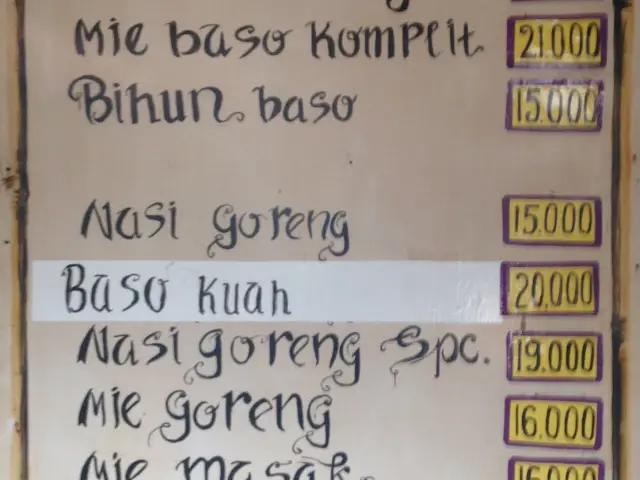 Mie baso Komplit 21.000
Bihun baso 15.000
Nasi goreng 15.000
Baso Kuah 20.000
Nasi goreng Spc. 19.000
Mie goreng 16.000
Mie masak 16.000